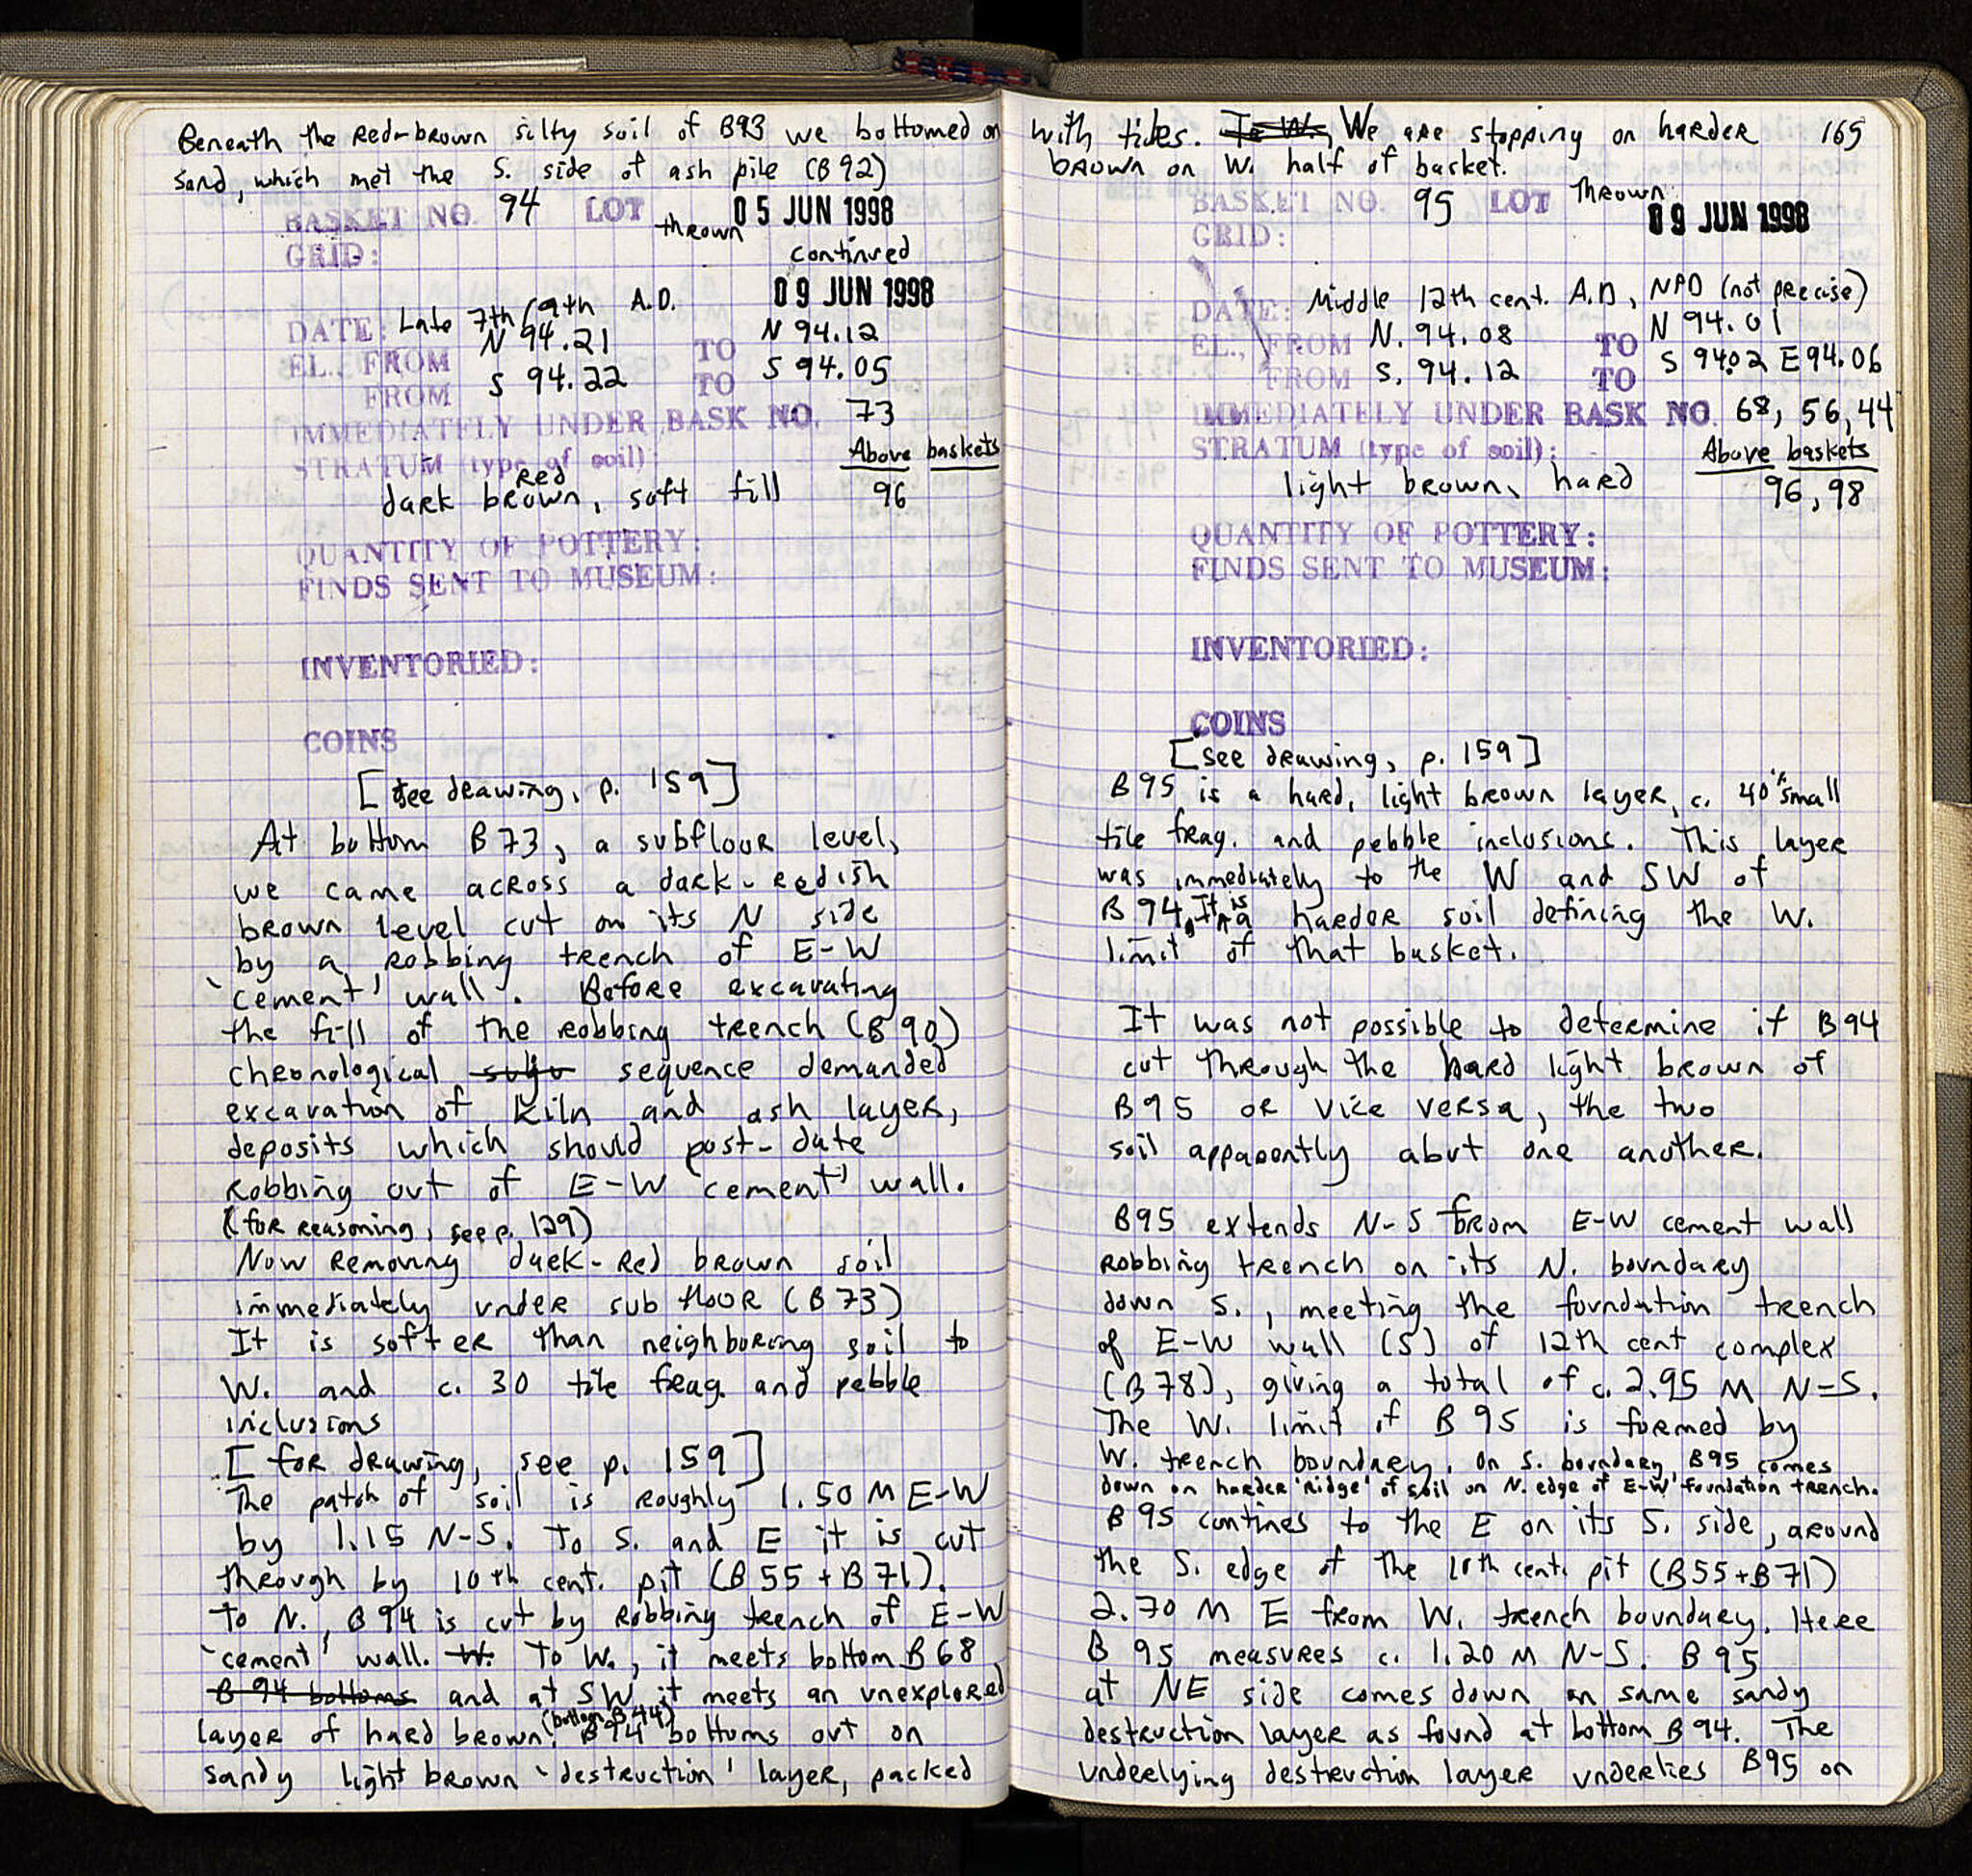 Beneath the Red-brown silty soil of B93 we bottomed on
sand, which met the S. side of ash pile (B92)
BASKET NO. 94 LOT thrown 05 JUN 1998
GRID: continued
09 JUN 1998
DATE: Late 7th/9th A.D.
EL., FROM N 94.21 TO N 94.12
FROM S 94.22 TO S 94.05
IMMEDIATELY UNDER BASK NO. 73
STRATUM (type of soil): Above baskets
dark Red brown, soft fill 96
QUANTITY OF POTTERY:
FINDS SENT TO MUSEUM:
INVENTORIED:
COINS
[see drawing, p. 159]
At bottom B73, a subflour level,
we came across a dark-redish
brown level cut on its N side
by a robbing trench of E-W
'cement' wall. Before excavating
the fill of the robbing trench (B90)
chronological sequence demanded
excavation of kiln and ash layer,
deposits which should post-date
Robbing out of E-W 'cement' wall.
(for reasoning, see p. 129)
Now removing dark-Red brown soil
immediately under sub floor (B73)
It is softer than neighboring soil to
W. and c. 30 tile frag. and pebble
inclusions
[for drawing, see p. 159]
The patch of soil is roughly 1.50 M E-W
by 1.15 N-S. To S. and E it is cut
through by 10th cent. pit (B55+B71).
To N., B94 is cut by Robbing trench of E-W
'cement' wall. W. To W., it meets bottom B68
B 94 bottoms and at SW it meets an unexplored
layer of hard brown (bottom B44). B94 bottoms out on
sandy light brown 'destruction' layer, packed
with tiles. We are stopping on harder 165
brown on W. half of basket.
BASKET NO. 95 LOT Thrown
GRID: 09 JUN 1998
DATE: Middle 12th cent. A.D, NPD (not precise)
EL., FROM N. 94.08 TO N 94.01
FROM S. 94.12 TO S 94.02 E 94.06
IMMEDIATELY UNDER BASK NO. 68, 56, 44
STRATUM (type of soil): Above baskets
light brown, hard 96, 98
QUANTITY OF POTTERY:
FINDS SENT TO MUSEUM:
INVENTORIED:
COINS
[see drawing, p. 159]
B95 is a hard, light brown layer, c. 40% small
tile frag. and pebble inclusions. This layer
was immediately to the W and SW of
B94. It is a harder soil defining the W.
limit of that basket.
It was not possible to determine if B94
cut through the hard light brown of
B95 or vice versa, the two
soil appaontly abut one another.
B95 extends N-S from E-W cement wall
Robbing trench on its N. boundary
down S., meeting the foundation trench
of E-W wall (S) of 12th cent complex
(B78), giving a total of c. 2.95 M N-S.
The W. limit if B95 is formed by
W. trench boundary. On S. boundary B95 comes
down on harder 'ridge' of soil on N. edge of E-W foundation trench.
B95 contines to the E on its S. side, around
the S. edge of the 10th cent. pit (B55+B71)
2.70 M E from W. trench boundary. Here
B 95 measures c. 1.20 M N-S. B95
at NE side comes down on same sandy
destruction layer as found at bottom B94. The
underlying destruction layer underlies B95 on